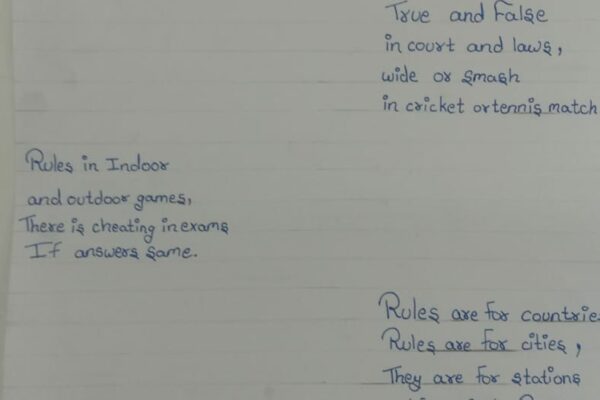 True and False
in court and laws,
wide or smash
in cricket or tennis match
Rules in Indoor
and outdoor games,
There is cheating in exams
If answers same.
Rules are for countrie
Rules are for cities,
They are for stations